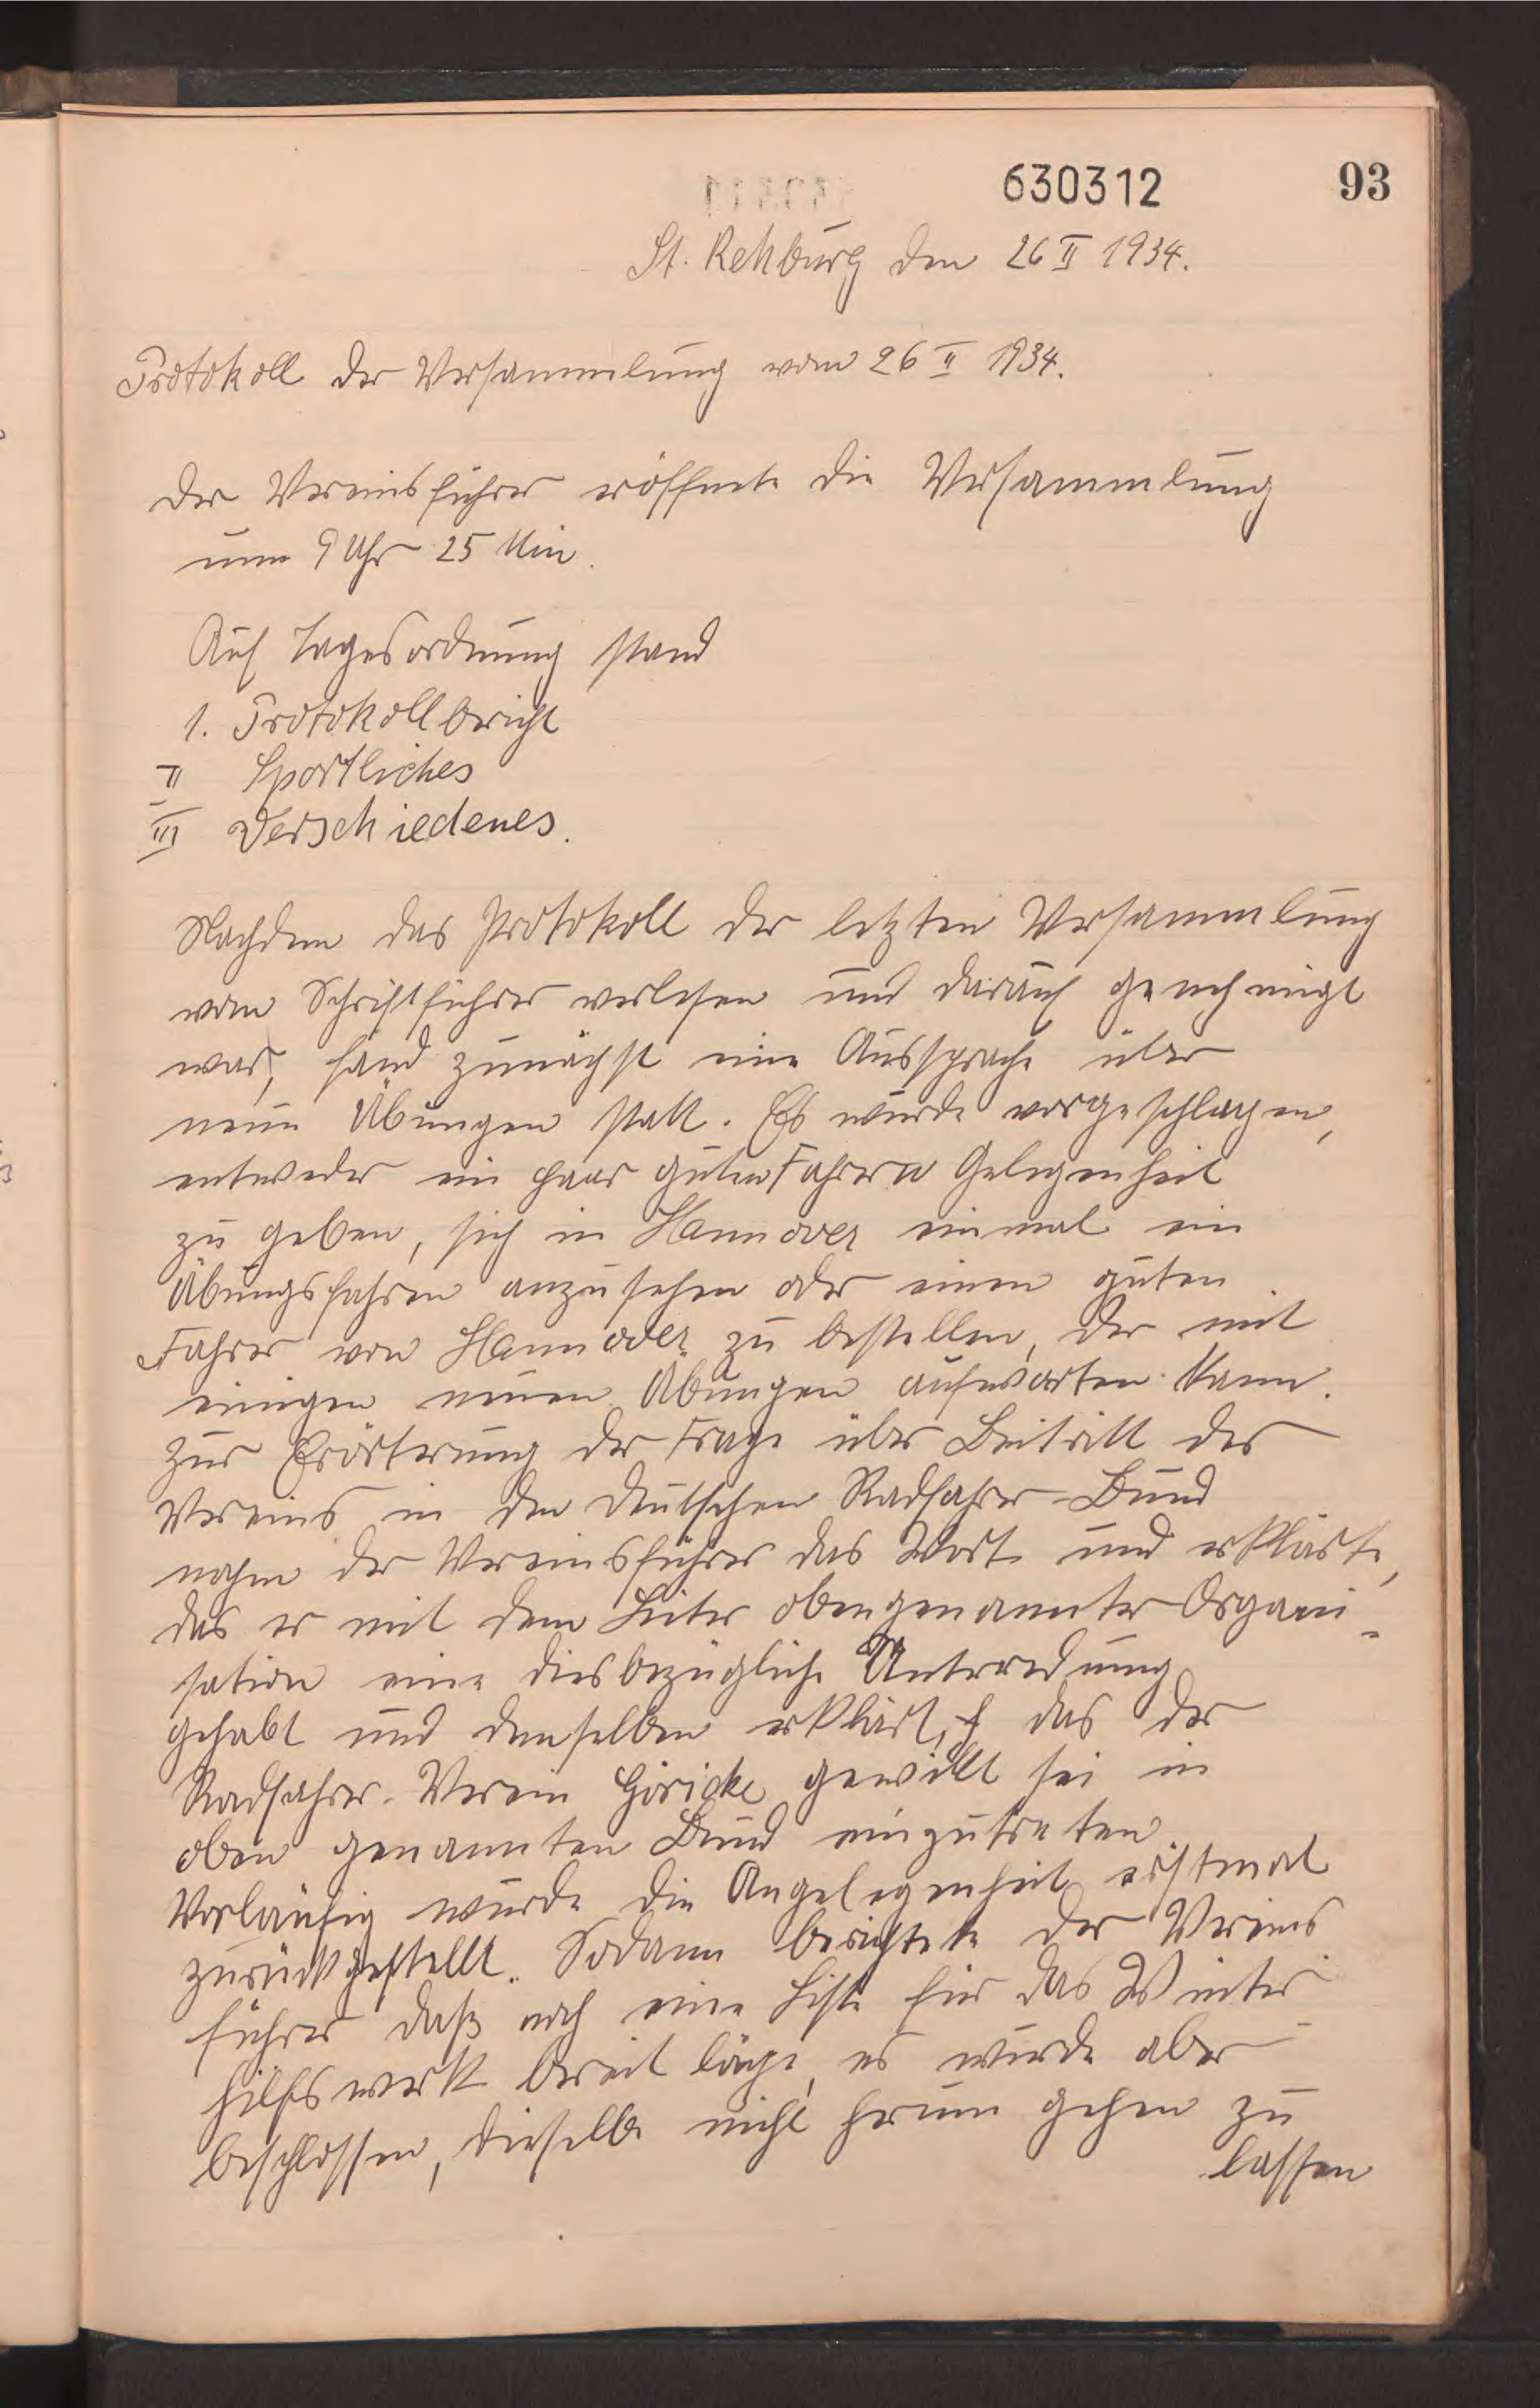 630312
93
St. Rehburg den 26 II 1934.
Protokoll der Versammlung vom 26 II 1934.
Der Vereinsführer eröffnete die Versammlung
um 9 Uhr 25 Min.
Auf Tagesordnung stand
1. Protokollbericht
II Sportliches
III Verschiedenes.
Nachdem das Protokoll der letzten Versammlung
vom Schriftführer verlesen und darauf genehmigt
war, fand zunächst eine Aussprache über
neue Übungen statt. Es wurde vorgeschlagen,
entweder ein paar guten Fahrern Gelegenheit
zu geben, sich in Hannover einmal ein
Übungsfahren anzusehen oder einen guten
Fahrer von Hannover zu bestellen, der mit
einigen neuen Übungen aufwarten kann.
Zur Erörterung der Frage über Beitritt des
Vereins in den deutschen Radfahrer-Bund
nahm der Vereinsführer das Wort und erklärte,
das er mit dem Leiter obengenannter Organi-
sation eine diesbezügliche Unterredung
gehabt und demselben erklärt, das der
Radfahrer-Verein Göricke gewillt sei in
oben genannten Bund einzutreten
Vorläufig wurde die Angelegenheit erstmal
zurückgestellt. Sodann berichtete der Vereins
führer daß noch eine Liste für das Winter-
hilfswerk bereit läge, es wurde aber
beschlossen, dieselbe nicht herum gehen zu
lassen